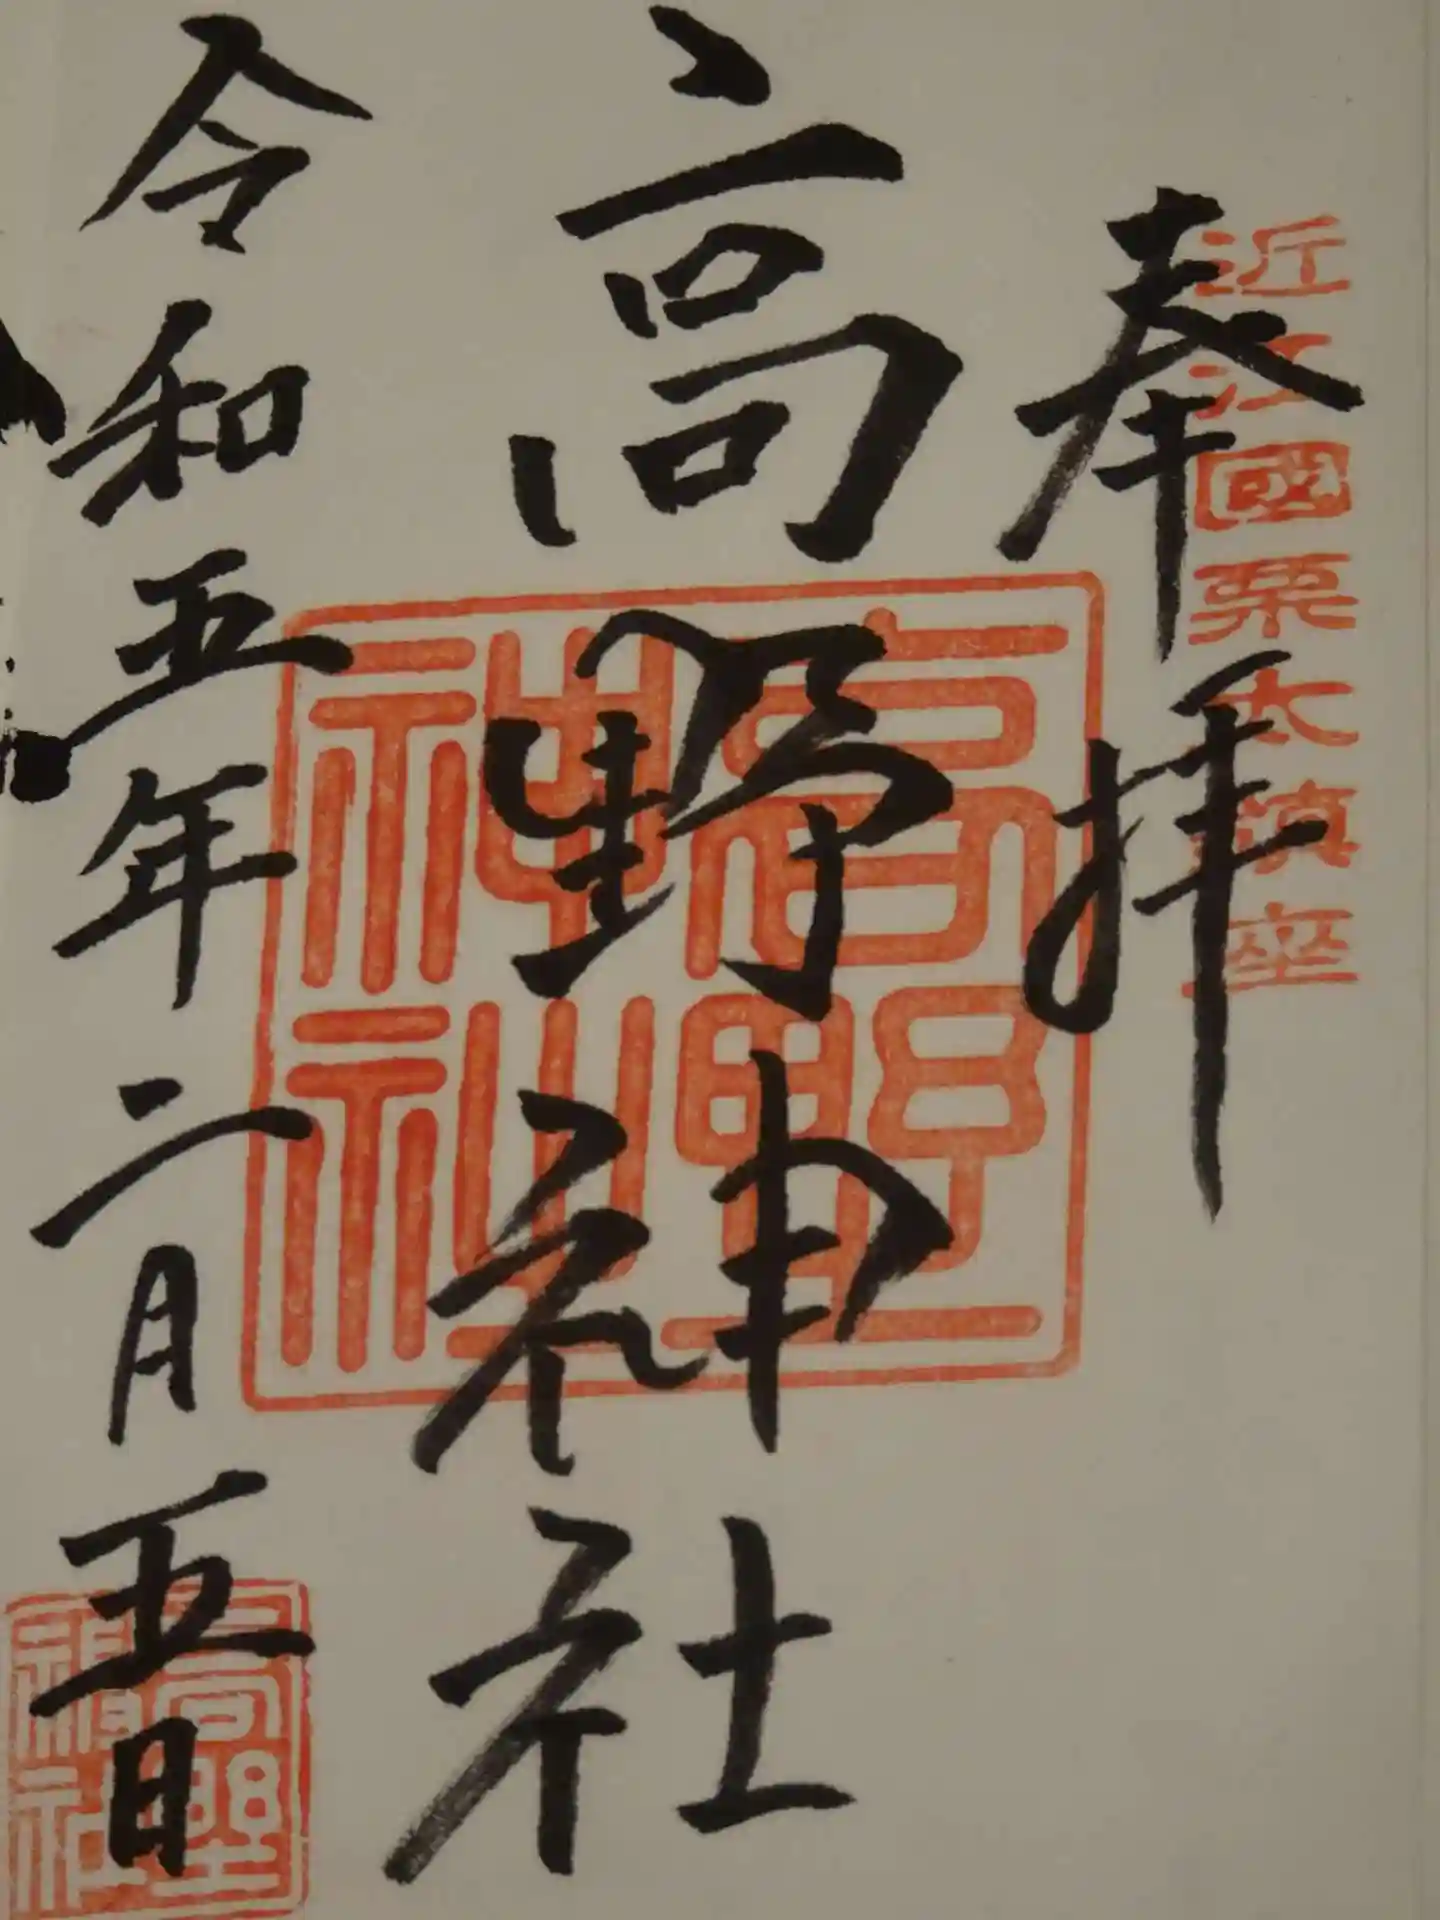 近江國栗太鎮座
奉拝
高野神社
高野神社
令和五年二月五日
高野神社